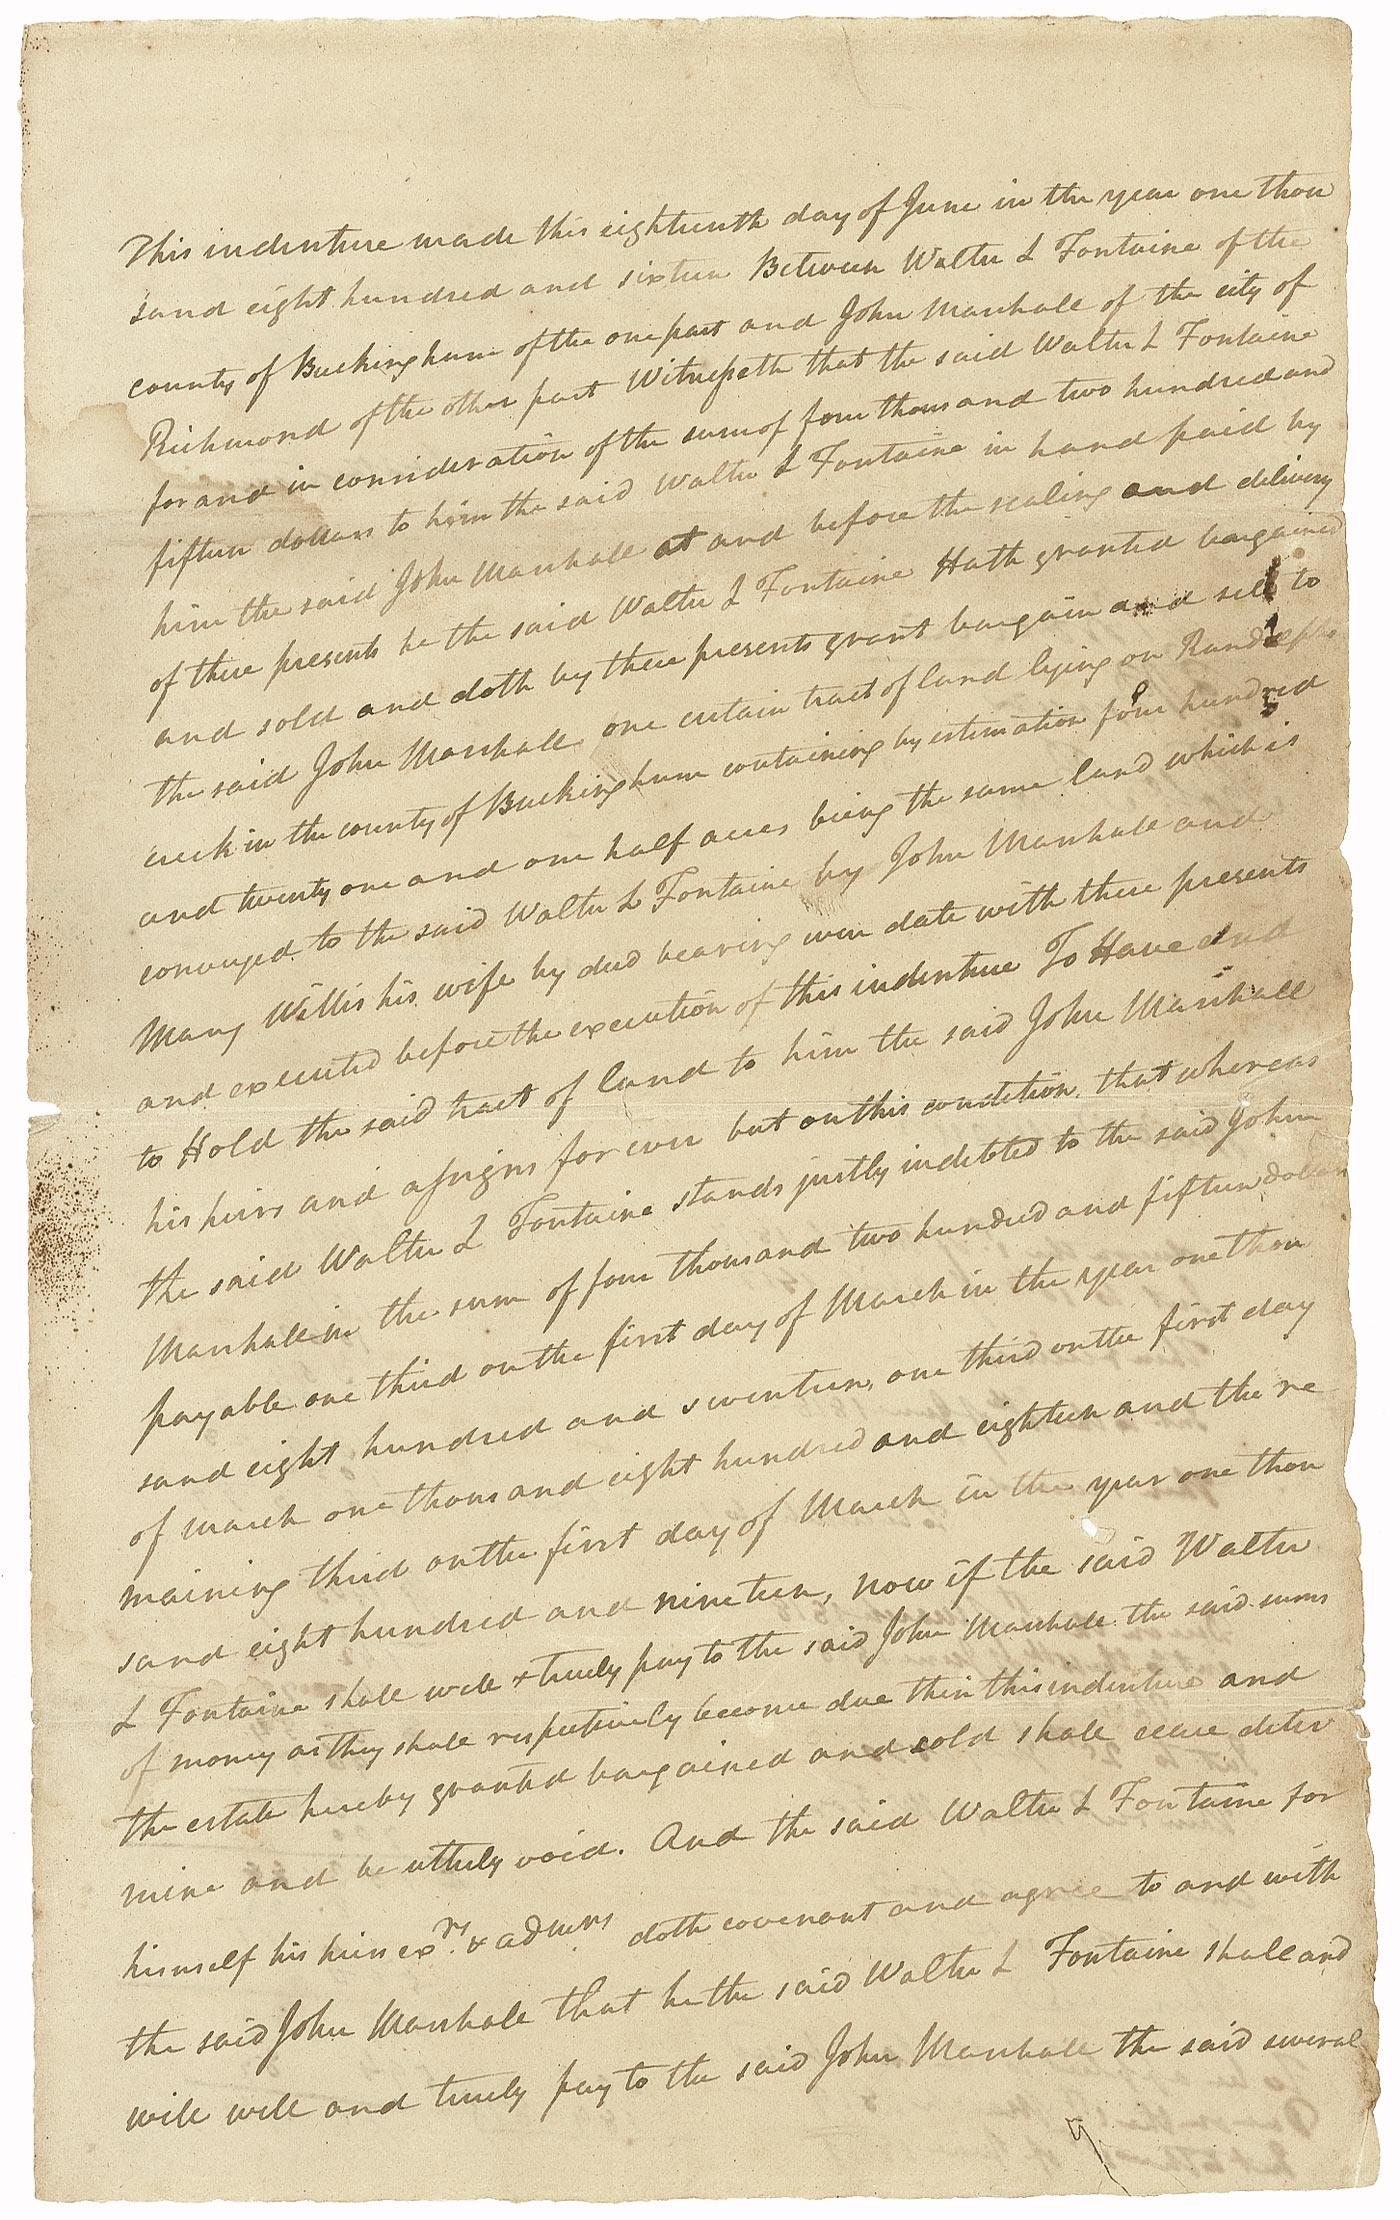 This indenture made this eighteenth day of June in the year one thou
sand eight hundred and sixteen Between Walter L Fontaine of the
county of Buckingham of the one part and John Marshall of the city of
Richmond of the other part Witnesseth that the said Walter L Fontaine
for and in consideration of the sum of four thousand two hundred and
fifteen dollars to him the said Walter L Fontaine in hand paid by
him the said John Marshall at and before the sealing and delivery
of these presents he the said Walter L Fontaine Hath granted bargained
and sold and doth by these presents grant bargain and sell to
the said John Marshall one certain tract of land lying on Randolphs
creek in the county of Buckingham containing by estimation four hundred
and twenty one and one half acres being the same land which is
conveyed to the said Walter L Fontaine by John Marshall and
Mary Willis his wife by deed bearing even date with these presents
and executed before the execution of this indenture To Have and
to Hold the said tract of land to him the said John Marshall
his heirs and assigns for ever but on this condition that whereas
the said Walter L Fontaine stands justly indebted to the said John
Marshall in the sum of four thousand two hundred and fifteen dollars
payable one third on the first day of March in the year one thou
sand eight hundred and seventeen, one third on the first day
of march one thousand eight hundred and eighteen and the re
maining third on the first day of March in the year one thou
sand eight hundred and nineteen, now if the said Walter
L Fontaine shall well & truely pay to the said John Marshall the said sums
of money as they shall respectively become due then this indenture and
the estate hereby granted bargained and sold shall cease deter
mine and be utterly void. And the said Walter L Fontaine for
himself his heirs exrs. & admrs. doth covenant and agree to and with
the said John Marshall that he the said Walter L Fontaine shall and
will well and truely pay to the said John Marshall the said several